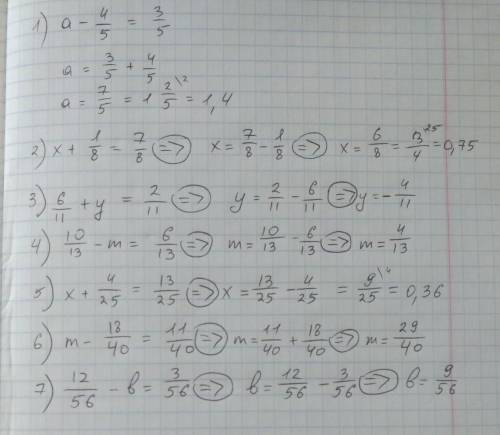 1) a - 4/5 = 3/5
a = 3/5 + 4/5
a = 7/5 = 1 2/5 \2 = 1,4
2) x + 1/8 = 7/8 => x = 7/8 - 1/8 => x = 6/8 = 3/4 \25 = 0,75
3) 6/11 + y = 2/11 => y = 2/11 - 6/11 => y = - 4/11
4) 10/13 - m = 6/13 => m = 10/13 - 6/13 => m = 4/13
5) x + 4/25 = 13/25 => x = 13/25 - 4/25 = 9/25 \4 = 0,36
6) m - 18/40 = 11/40 => m = 11/40 + 18/40 => m = 29/40
7) 12/56 - b = 3/56 => b = 12/56 - 3/56 => b = 9/56